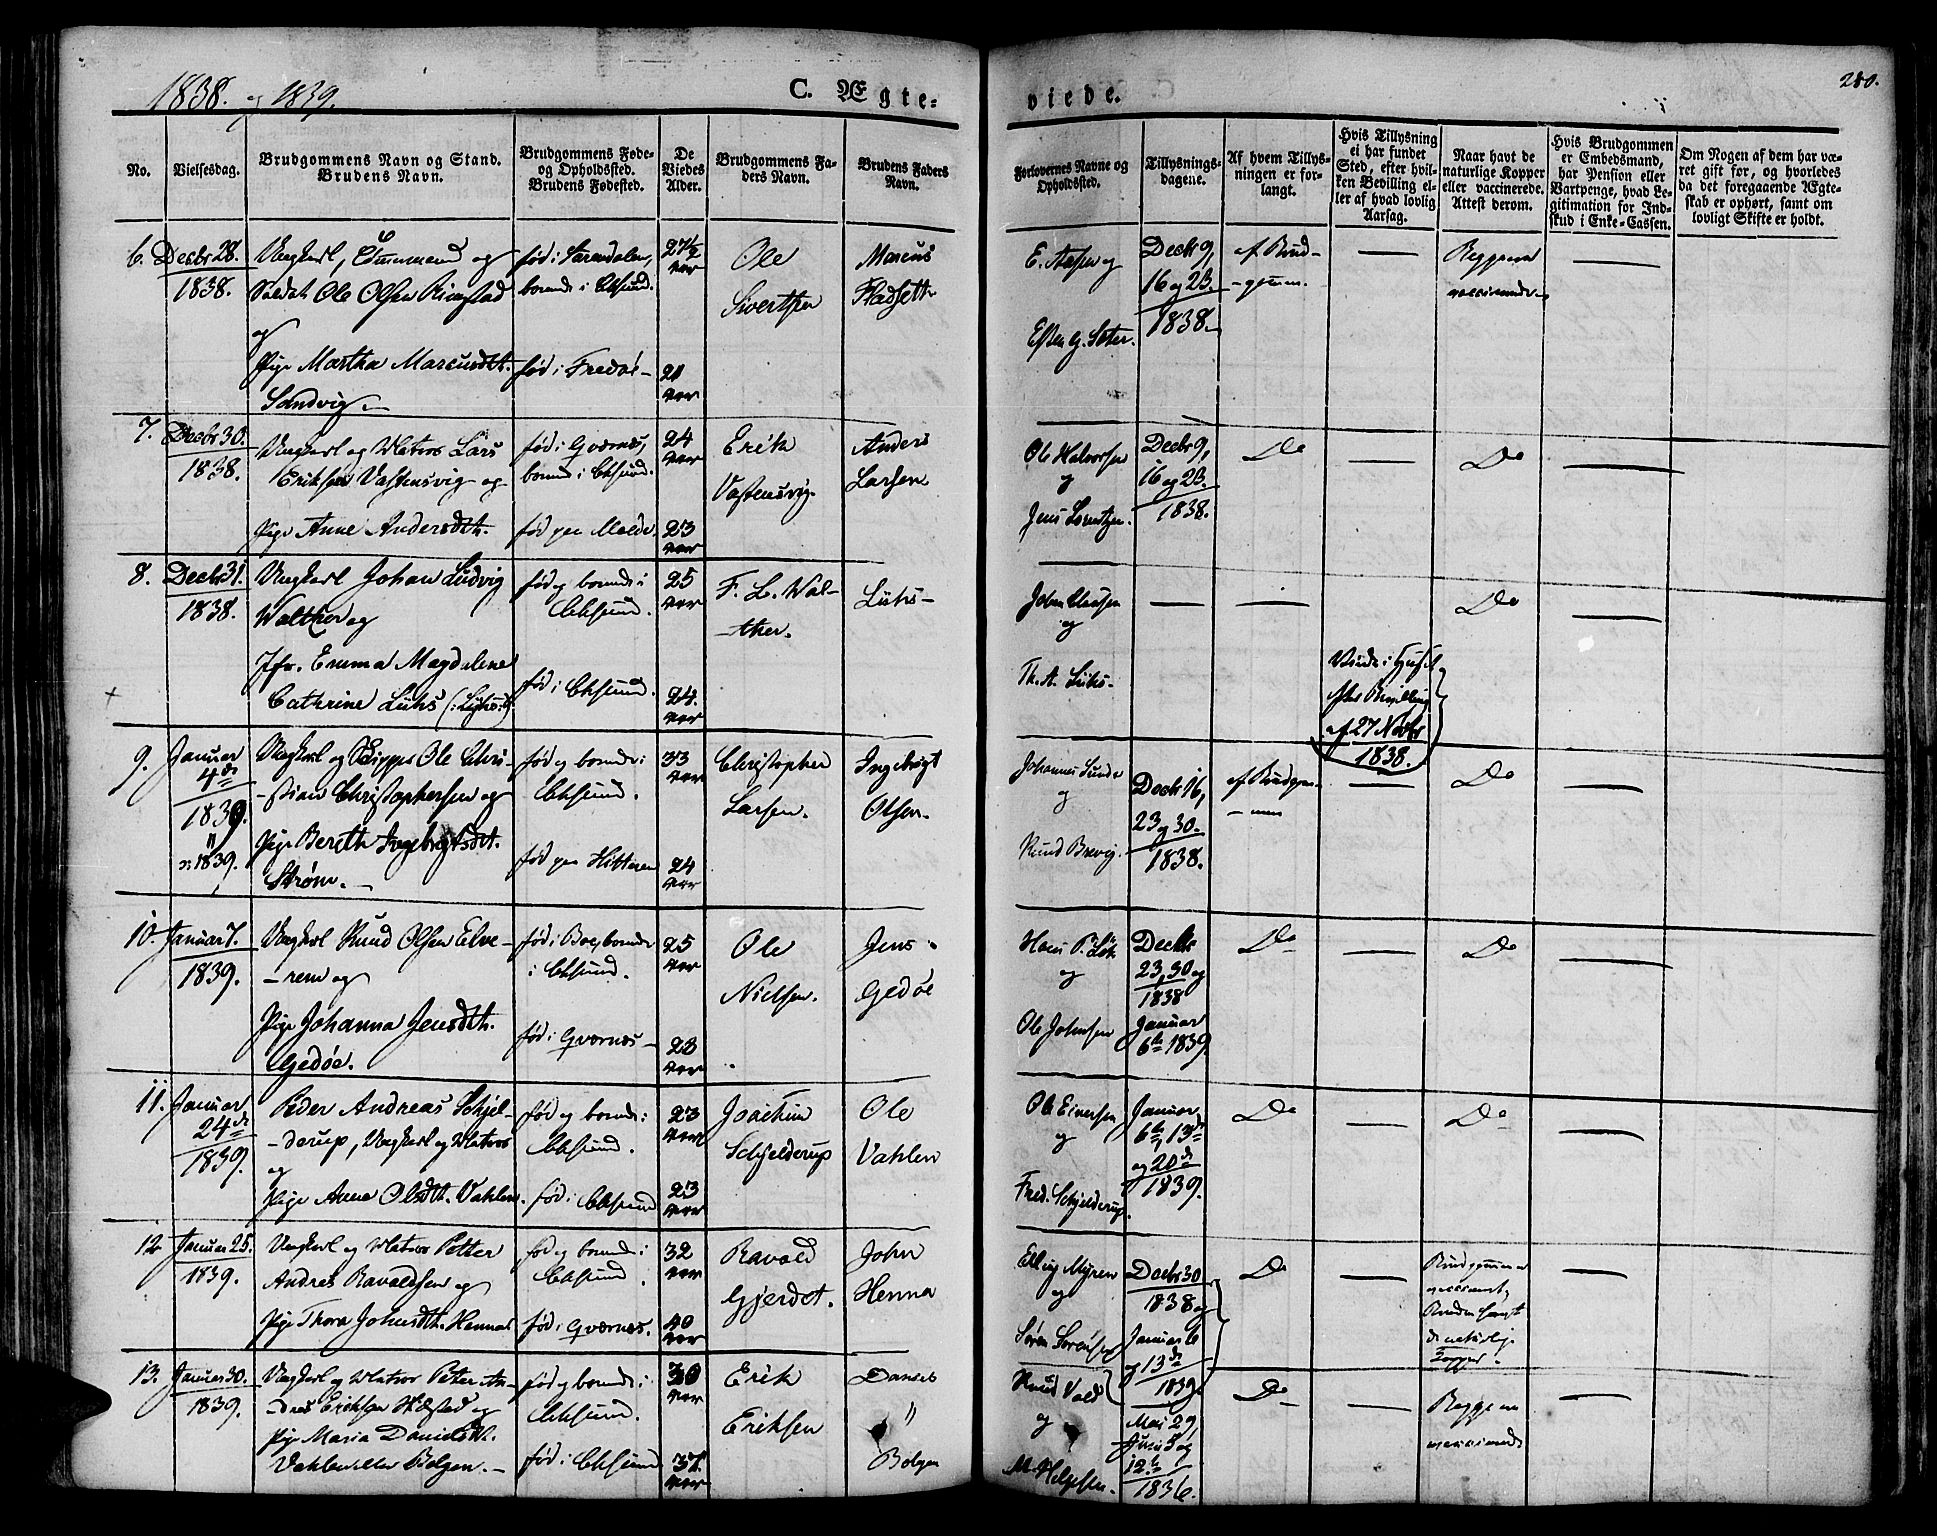 1838. og 1839.
C. Ægte-
viede.
280.
No.
Vielsesdag.
Brudgommens Navn og Stand.
Brudens Navn.
Brudgommens Føde-
og Opholdssted.
Brudens Fødested.
De
Viedes
Alder.
Brudgommens Fa-
ders Navn.
Brudens Faders
Navn.
Forlovernes Navne og
Opholdssted.
Tillysnings-
dagene.
Af hvem Tillys-
ningen er for-
langt.
Hvis Tillysning
ei har fundet
Sted, efter hvil-
ken Bevilling el-
ler af hvad lovlig
Aarsag.
Naar havt de
naturlige Kopper
eller vaccinerede.
Attest derom.
Hvis Brudgommen
er Embedsmand,
har Pension eller
Vartpenge, hvad Le-
gitimation for Ind-
skud i Enke-Cassen.
Om Nogen af dem har væ-
ret gift før, og hvorledes
da det foregaaende Ægte-
skab er ophørt, samt om
lovligt Skifte er holdt.
6. Decbr 28.
1838.
Ungkarl, og
Soldat Ole Olsen Rimstad
og
Pige Martha Marcusdtr.
Sandvig.
født i Surendalen,
boende i Chrsund.
født i Fredøe
27½
Aar
21
Aar
Ole
Sivertsen
Marcus
Fladseth
E. Aasen og
Esten G. Sæter.
Decbr 9,
16 og 23.
1838.
af Brud-
gommen.
Begge ere
vaccinerede
7. Decbr 30.
1838.
Ungkarl og Matros Lars
Eriksen Vastensvig og
Pige Anne Andersdtr.
født i Qværnes,
boende i Chrsund.
født paa Molde.
24
Aar
23
Aar
Erik
Vastensvig.
Anders
Larsen
Ole Halvorsen
og
Jens Lorentzen.
Decbr 9,
16 og 23.
1838.
Do
Do
8. Decbr 31.
1838.
Ungkarl Johan Ludvig
Walther og
Jfr. Emma Magdalene
Cathrine Lühs
født og boende i
Chrsund.
født i Chrsund.
25
Aar
24.
Aar
F. L. Wal-
ther.
Lühs
John Clausen
og
Th. A. Lühs.
Viede i Huset
efter Bevilling
af 27 Novbr
1838.
Do
9. Januar
4de
1839.
1839.
Ungkarl og Skipper Ole Chri-
stian Christophersen og
Pige Bereth Ingebrigtsdtr.
Strøm.
født og boende i
Chrsund.
født paa Hitteren
33
Aar
24
Aar
Christopher
Larsen.
Ingebrigt
Olsen.
Johannes Sunde
og
Knud Brevig.
Decbr 16,
23 og 30.
1838.
af Brudgom-
men
Do
10. Januar 7.
1839.
Ungkarl Knud Olsen Elve-
rem og
Pige Johanna Jensdtr.
Gedøe.
født i boende
i Chrsund.
født i Qværnes
25
Aar
23
Aar
Ole
Nielsen.
Jens
Gedøe
Hans P.
og
Ole Johnsen
Decbr
23, 30 og
1838
Januar
6te 1839.
Do
Do
11. Januar
24de
1839.
Peder Andreas Schjel-
derup, Ungkarl og Matros
og
Pige Anne Olsdtr. Vahlen.
født og boende i
Chrsund.
født i Chrsund
23
Aar
23
Aar
Joachim
Schjelderup
Ole
Vahlen
Ole Einersen
og
Fred. Schjelderup.
Januar
6te, 13de
og 20de
1839.
Do
Do
12. Januar 25.
1839.
Ungkarl og Matros Petter
Andreas Ravaldsen og
Pige Thora Johnsdtr. Henna
født og boende i
Chrsund.
født i Qværnes.
32
Aar
40
Aar
Ravald
Gjerdet.
John
Henna
Elling Myren
og
Søren Sørensen
Decbr 30
1838 og
Januar 6
og 13de
1839.
Do
Brudgommen er
vaccineret,
Bruden havt
de naturlige
Kopper.
13. Januar 30.
1839.
Ungkarl og Matros Peter An-
dreas Eriksen og
Pige Maria Danielsdtr.
Vahlen eller Bolgen.
født og boende i
Chrsund.
født i Chrsund
30
Aar
37.
Aar
Erik
Eriksen
Daniel
Bolgen
Knud Vold
og
Mai 29,
Juni 5 og
12te
1836.
Do
Begge ere
vaccinerede